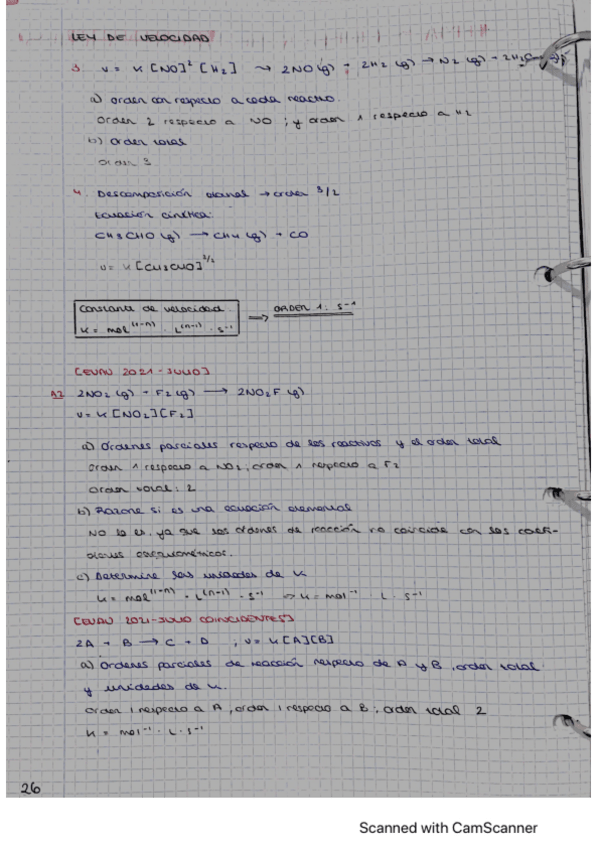 LEY DE VELOCIDAD
3. v = k [NO]² [H₂] → 2NO(g) + 2H₂(g) → N₂(g) + 2H₂
a) orden con respecto a cada reactivo.
Orden 2 respecto a NO ; y orden 1 respecto a H₂
b) Orden total
Orden 3
4. Descomposición etanal → orden 3/2
Ecuación cinética:
CH₃CHO(g) → CH₄(g) + CO
v = k [CH₃CHO]^3/2
Constante de velocidad.
k = mol^(1-n) · L^(n-1) · s⁻¹
⟹ ORDEN 1: s⁻¹
[EVAU 2021-JULIO]
A2 2NO₂(g) + F₂(g) → 2NO₂F(g)
v = k [NO₂][F₂]
a) Órdenes parciales respecto de los reactivos y el orden total
orden 1 respecto a NO₂, orden 1 respecto a F₂
Orden total: 2
b) Razone si es una ecuación elemental
No lo es, ya que los órdenes de reacción no coincide con los coefi-
cientes estequiométricos.
c) Determine las unidades de k
k = mol^(1-n) · L^(n-1) · s⁻¹ ⇒ k = mol⁻¹ · L · s⁻¹
[EVAU 2021-JULIO COINCIDENTES]
2A + B → C + D , v = k [A][B]
a) Ordenes parciales de reacción respecto de A y B, orden total
y unidades de k.
orden 1 respecto a A, orden 1 respecto a B; orden total 2
k = mol⁻¹ · L · s⁻¹
26
Scanned with CamScanner